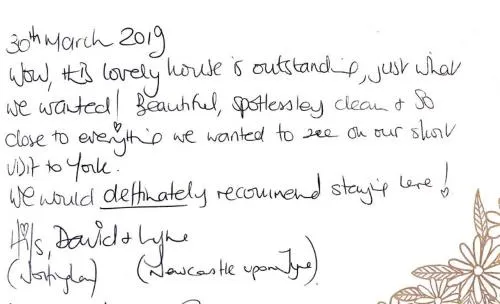 30th March 2019
Wow, this lovely house is outstanding, just what
we wanted! Beautiful, spotlessley clean & so
close to everything we wanted to see on our short
visit to York.
We would deffinately recommend staying here!
Hils, David & Lyne
(Nottingham) (Newcastle upon Tyne).